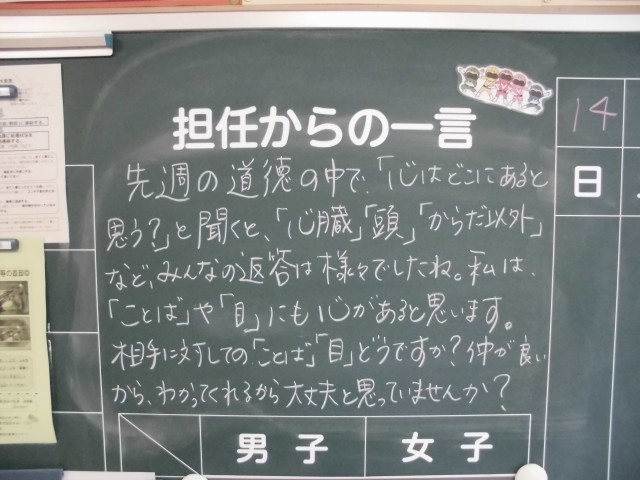 担任からの一言
先週の道徳の中で、「心はどこにあると
思う?」と聞くと、「心臓」「頭」「からだ以外」
など、みんなの返答は様々でしたね。私は、
「ことば」や「目」にも心があると思います。
相手に対しての「ことば」「目」どうですか?仲が良い
から、わかってくれるから大丈夫と思っていませんか?
14
日
男子
女子